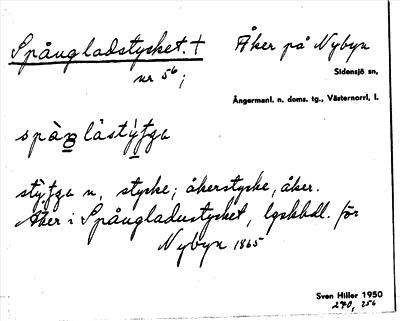 Spångladstycket. † Åker på Nybyn
nr 56; Sidensjö sn,
Ångermanl. n. doms. tg., Västernorrl, l.
stỳtga n, stycke; åkerstycke, åker.
Åker i Spångladustycket, lgskbdl. för
Nybyn 1865
Sven Hiller 1950
240, 256